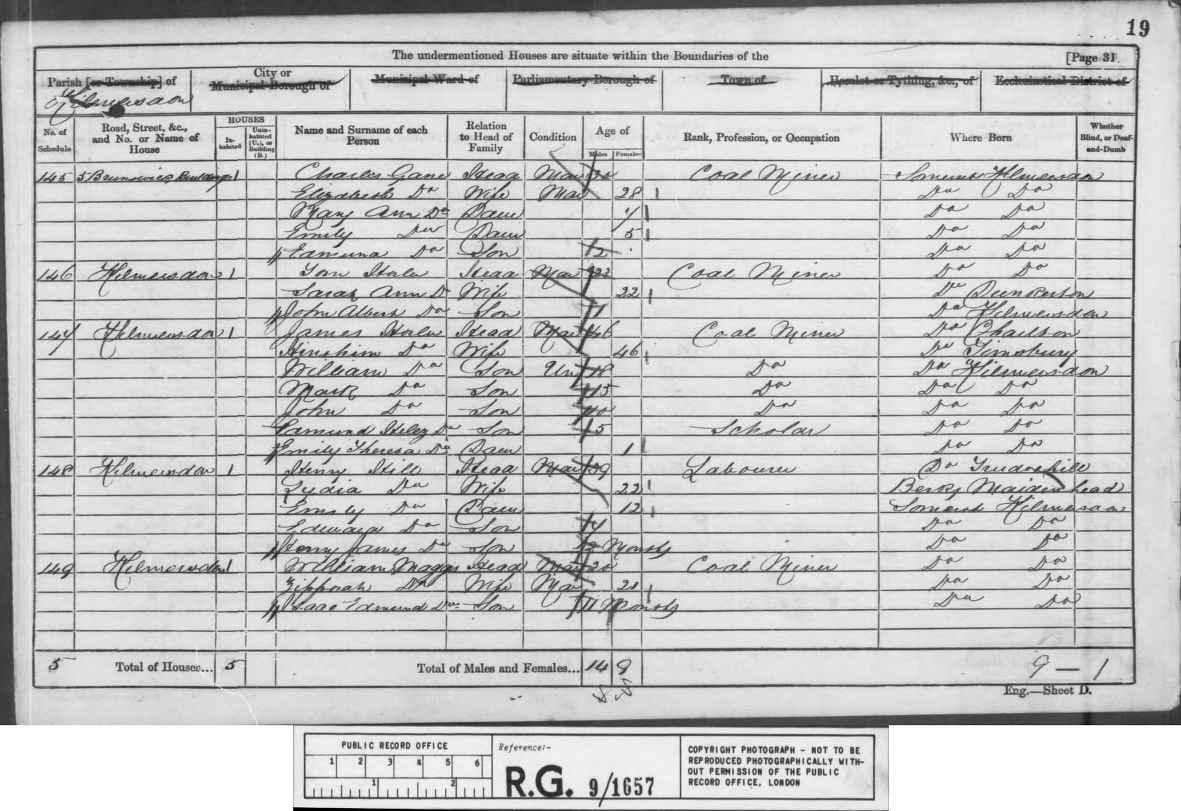 19
The undermentioned Houses are situate within the Boundaries of the
[Page 31
Parish [or Township] of
City or Municipal Borough of
Municipal Ward of
Parliamentary Borough of
Town of
Hamlet or Tything, &c., of
Ecclesiastical District of
Kilmersdon
No. of Schedule
Road, Street, &c., and No. or Name of House
HOUSES
Inhabited
Uninhabited (U.), or Building (B.)
Name and Surname of each Person
Relation to Head of Family
Condition
Age of
Males
Females
Rank, Profession, or Occupation
Where Born
Whether Blind, or Deaf-and-Dumb
145 5 Brunswick Buildings 1 Charles Gane Head Mar 30 Coal Miner Somerset Kilmersdon
Elizabeth Do Wife Mar 28 Do Do
Mary Ann Do Daur 7 Do Do
Emily Do Daur 5 Do Do
Edmund Do Son 2 Do Do
146 Kilmersdon 1 Tom Head Mar 22 Coal Miner Do Do
Sarah Ann Do Wife 22 Do Dunkerton
John Albert Do Son 1 Do Kilmersdon
147 Kilmersdon 1 James Head Mar 46 Coal Miner Do
Do Wife 46 Do Timsbury
William Do Son Un 18 Do Do Kilmersdon
Mark Do Son 15 Do Do Do
John Do Son 10 Do Do Do
Edmund Do Son 5 Scholar Do Do
Emily Theresa Do Daur 1 Do Do
148 Kilmersdon 1 Henry Hill Head Mar 29 Labourer Do
Lydia Do Wife 22 Berks Maidenhead
Emily Do Daur 12 Somerset Kilmersdon
Edward Do Son 4 Do Do
Henry James Do Son Months Do Do
149 Kilmersdon 1 William Maggs Head Mar 20 Coal Miner Do Do
Zipporah Do Wife Mar 20 Do Do
Edmund Do Son 11 Months Do Do
5 Total of Houses... 5 Total of Males and Females... 14 9 9 — 1
Eng.—Sheet D.
PUBLIC RECORD OFFICE
1 2 3 4 5 6
1 2
Reference:-
R.G. 9/1657
COPYRIGHT PHOTOGRAPH - NOT TO BE
REPRODUCED PHOTOGRAPHICALLY WITH-
OUT PERMISSION OF THE PUBLIC
RECORD OFFICE, LONDON